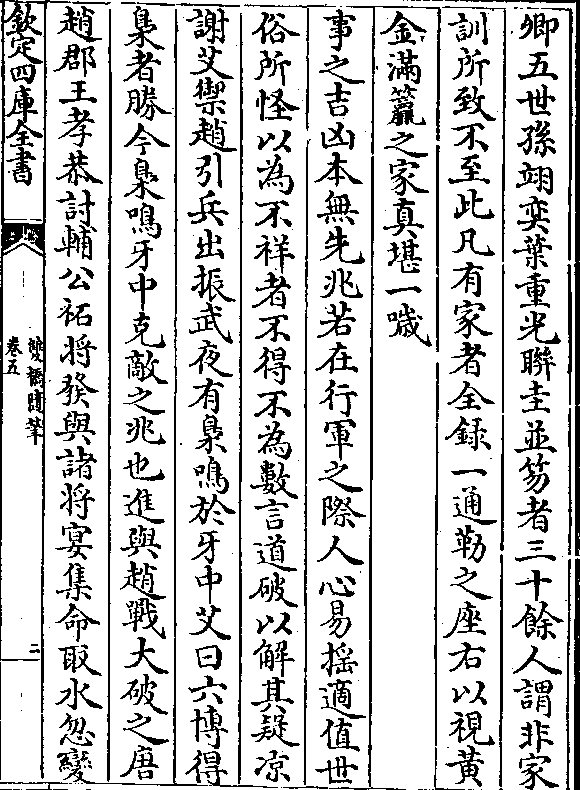 卿五世孫翊奕葉重光聨圭並笏者三十餘人謂非家
訓所致不至此凡有家者全録一通勒之座右以視黄
金滿籯之家真堪一噱
事之吉凶本無先兆若在行軍之際人心易揺適值世
俗所怪以為不祥者不得不為數言道破以解其疑凉
謝艾禦趙引兵出振武夜有梟鳴於牙中艾曰六博得
梟者勝今梟鳴牙中克敵之兆也進與趙戰大破之唐
趙郡王孝恭討輔公祏將發與諸將宴集命取水忽變
欽定四庫全書
雙橋隨筆
卷五
二